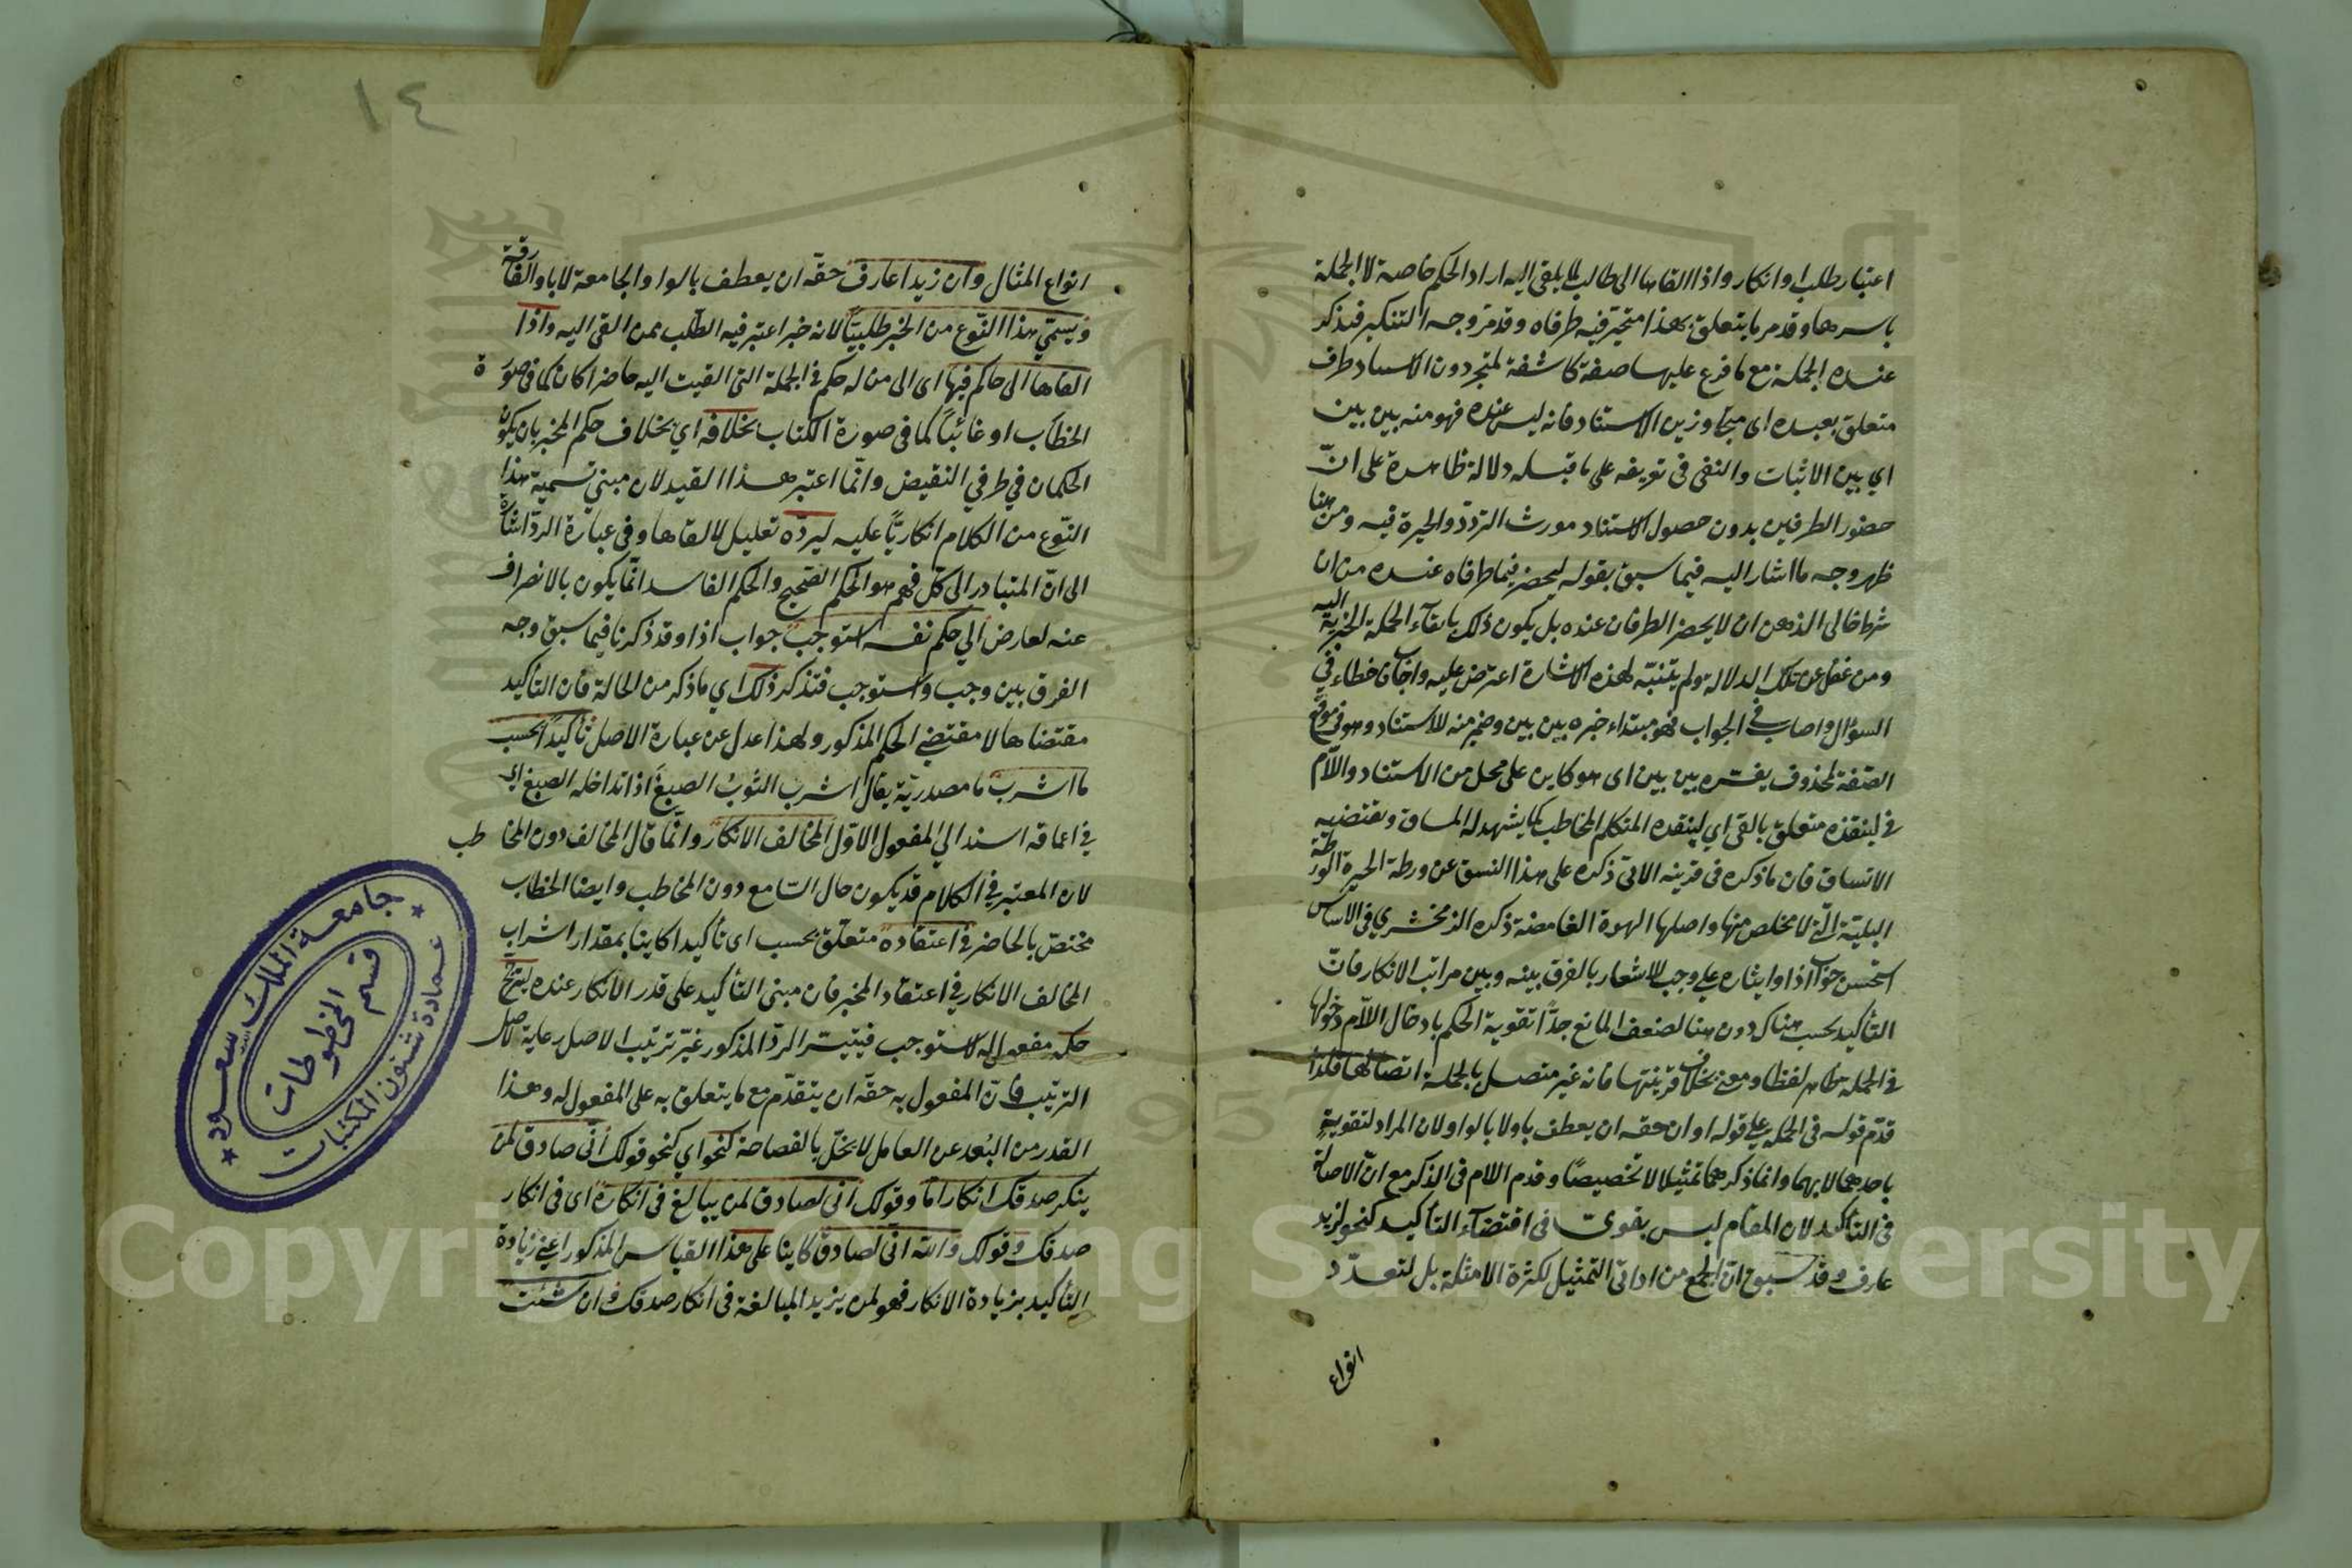 اعتبار طلب او انكار واذا القاها الى طالب لما يلقى اليه اراد الحكم خاصة لا الجملة
باسرها وقدم ما يتعلق بهذا متحير فيه طرفاه وقدم وجه التنكير فتذكر
عنده الجملة مع ما فرع عليها صفة كاشفة لمتحير دون الاسناد ظرف
متعلق بعنده اى متجاوزين الاستناد فانه ليس عنده فهو منه بين بين
اي بين الاثبات والنفى فى تفريعه على ما قبله دلالة ظاهرة على انّ
حضور الطرفين بدون حصول الاستناد مورث التردّد والحيرة فيه ومن هنا
ظهر وجه ما اشار اليه فيما سبق بقوله ليحضر فيما طرفاه عنده من ان
شرط خالى الذهن ان لا يحضر الطرفان عنده بل يكون ذلك بالقآء الجملة الخبرية اليه
ومن غفل عن تلك الدلالة ولم يتنبّه لهذه الاشارة اعترض عليه واجاب خطاء في
السؤال واصاب في الجواب فهو مبتداء خبره بين بين وضمير منه للاستناد وهو فى موقع
الصّفة لمحذوف يفسّره بين بين اى هو كاين على محل من الاستناد واللّام
في لينقذه متعلق بالقى اي لينقده المتكلم المخاطب كما يشهد له المساق ويقتضيه
الاتساق فان ما ذكره فى قرينه الاتى ذكره على هذا النسق عن ورطة الحيرة الورطة
البليّة الّتي لا مخلص منها واصلها الهوة الغامضة ذكره الزمخشري فى الاساس
استحسن جواب اذا وايثاره على وجب للاشعار بالفرق بينه وبين مراتب الانكار فانّ
التأكيد يحسب هناك دون هنا لضعف المانع جدًّا تقوية الحكم بادخال اللّام دخولها
في الجملة ظاهر لفظا ومعنى بخلاف قرينتها فانه غير متصل بالجملة اتصالها فلذا
قدّم قوله فى الجملة على قوله او ان حقه ان يعطف باو لا بالواو لان المراد لتقوية
باحدهما لا بهما وانما ذكرهما تمثيلا لا تخصيصًا وقدم اللام فى الذكر مع انّ الاصالة
فى التأكيد لان المقام ليس بقوىّ فى اقتضآء التأكيد كنحو لزيد
عارف وقد سبق انّ الجمع من اداتى التمثيل لكثرة الامثلة بل لتعدّد
انواع
١٤
انواع المثال وان زيدا عارف حقّه ان يعطف بالواو الجامعة لا باو الفارقة
ويسمّي هذا النّوع من الخبر طلبيًّا لانه خبر اعتبر فيه الطلب ممن القى اليه واذا
القاها الى حاكم فيها اى الى من له حكم في الجملة التى القيت اليه حاضرا كان كما فى صورة
الخطاب او غائبًا كما فى صورة الكتاب بخلافه اي بخلاف حكم المخبر بان يكون
الحكمان في طرفي النقيض وانّما اعتبر هذا القيد لان مبني تسمية هذا
النّوع من الكلام انكاريًّا عليه ليردّه تعليل لالقاها وفى عبارة الردّ اشارة
الى انّ المتبادر الى كلّ فهم هو الحكم الصّحيح والحكم الفاسد انّما يكون بالانصراف
عنه لعارض الي حكم نفسه استوجب جواب اذا وقد ذكرنا فيما سبق وجه
الفرق بين وجب واستوجب فتذكر ذلك اي ما ذكر من الحالة فان التأكيد
مقتضاها لا مقتضي الحكم المذكور ولهذا عدل عن عبارة الاصل تأكيدًا بحسب
ما اشرب ما مصدريّة يقال اشرب الثوبُ الصبغَ اذا تداخله الصبغ اي
في اعماقه اسند الي المفعول الاوّل المخالف الانكار وانّما قال المخالف دون المخاطب
لان المعتبر في الكلام قد يكون حال السّامع دون المخاطب وايضا الخطاب
مختصّ بالحاضر في اعتقاده متعلّق بحسب اى تأكيدا كاينا بمقدار اشراب
المخالف الانكار في اعتقاد المخبر فان مبنى التأكيد على قدر الانكار عنده ليترجّح
حكمه مفعول له لاستوجب فيتيسّر الردّ المذكور غيّر ترتيب الاصل رعاية لاصل
الترتيب فانّ المفعول به حقّه ان يتقدّم مع ما يتعلق به على المفعول له وهذا
القدر من البُعد عن العامل لا يخلّ بالفصاحة كنحو اي كنحو قولك انّى صادق لمن
ينكر صدقك انكارا مّا وقولك انى لصادق لمن يبالغ فى انكاره اى فى انكار
صدقك وقولك والله انّى لصادق كاينا على هذا القياس المذكور اعني زيادة
التأكيد بزيادة الانكار فهو لمن يزيد المبالغة فى انكار صدقك وان شئت
جامعة الملك سعود
قسم المخطوطات
عمادة شئون المكتبات
Copyright © King Saud University
1957